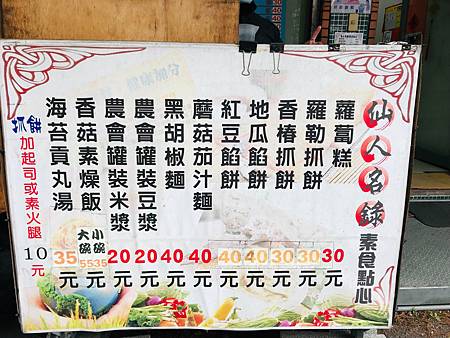 仙人名錄 素食點心
蘿蔔糕 30元
羅勒抓餅 30元
香椿抓餅 30元
地瓜餡餅 40元
紅豆餡餅 40元
蘑菇茄汁麵 40元
黑胡椒麵 40元
農會罐裝豆漿 20元
農會罐裝米漿 20元
香菇素燥飯 小碗35 大碗55元
海苔貢丸湯 35元
抓餅加起司或素火腿10元